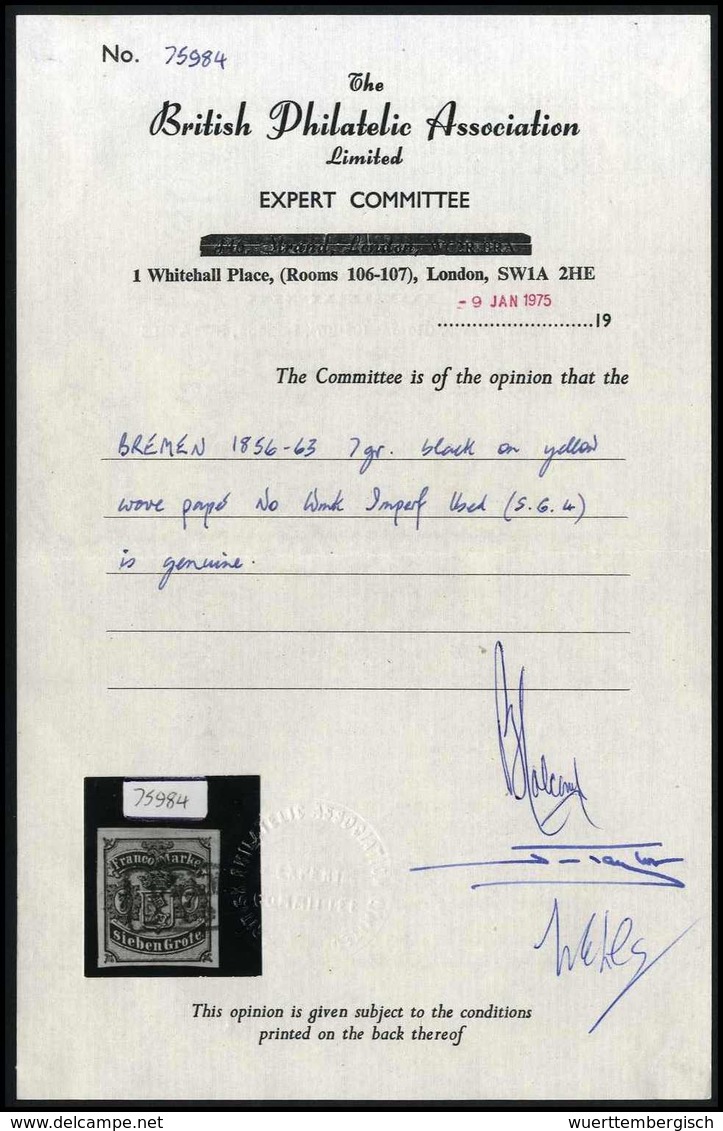 No. 75984
The
British Philatelic Association
Limited
EXPERT COMMITTEE
1 Whitehall Place, (Rooms 106-107), London, SW1A 2HE
- 9 JAN 1975
19
The Committee is of the opinion that the
BREMEN 1856-63 7gr. black on yellow
wove paper No Wmk Imperf Used (S.G.4)
is genuine.
75984
Franco Marke
Sieben Grote.
This opinion is given subject to the conditions
printed on the back thereof
delcampe.net
wuerttembergisch